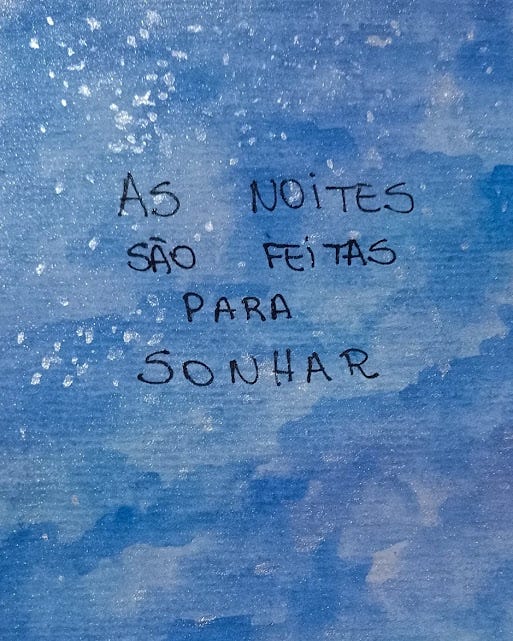 AS NOiTES
SÃO FEiTAS
PARA
SONHAR